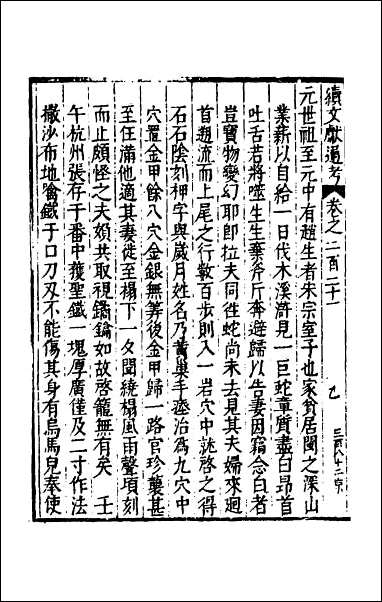 續文獻通考 卷之二百二十
元世祖至元中有趙生者朱宗室子也家貧居閩之深山
業薪以自給一日伐木溪滸見一巨蛇章質盡白昂首
吐舌若將噬生生棄斧斤奔避歸以告妻因竊念白者
豈寶物變幻耶即拉夫同往蛇尚未去見其夫婦來廻
首趨流而上尾之行數百步則入一岩穴中就啓之得
石石陰刻押字與歲月姓名乃黃巢手瘞治為九穴中
穴置金甲餘八穴金銀無筭後金甲歸一路官珍襲甚
至任滿他適其妻徙至榻下一夕聞繞榻風雨聲頃刻
而止頗怪之夫妫共取視鐍鑰如故啓籠無有矣 壬
午杭州張存于番中獲聖鐵一塊厚廣僅及二寸作法
撒沙布地噙鐵于口刀刃不能傷其身有烏馬兒奉使